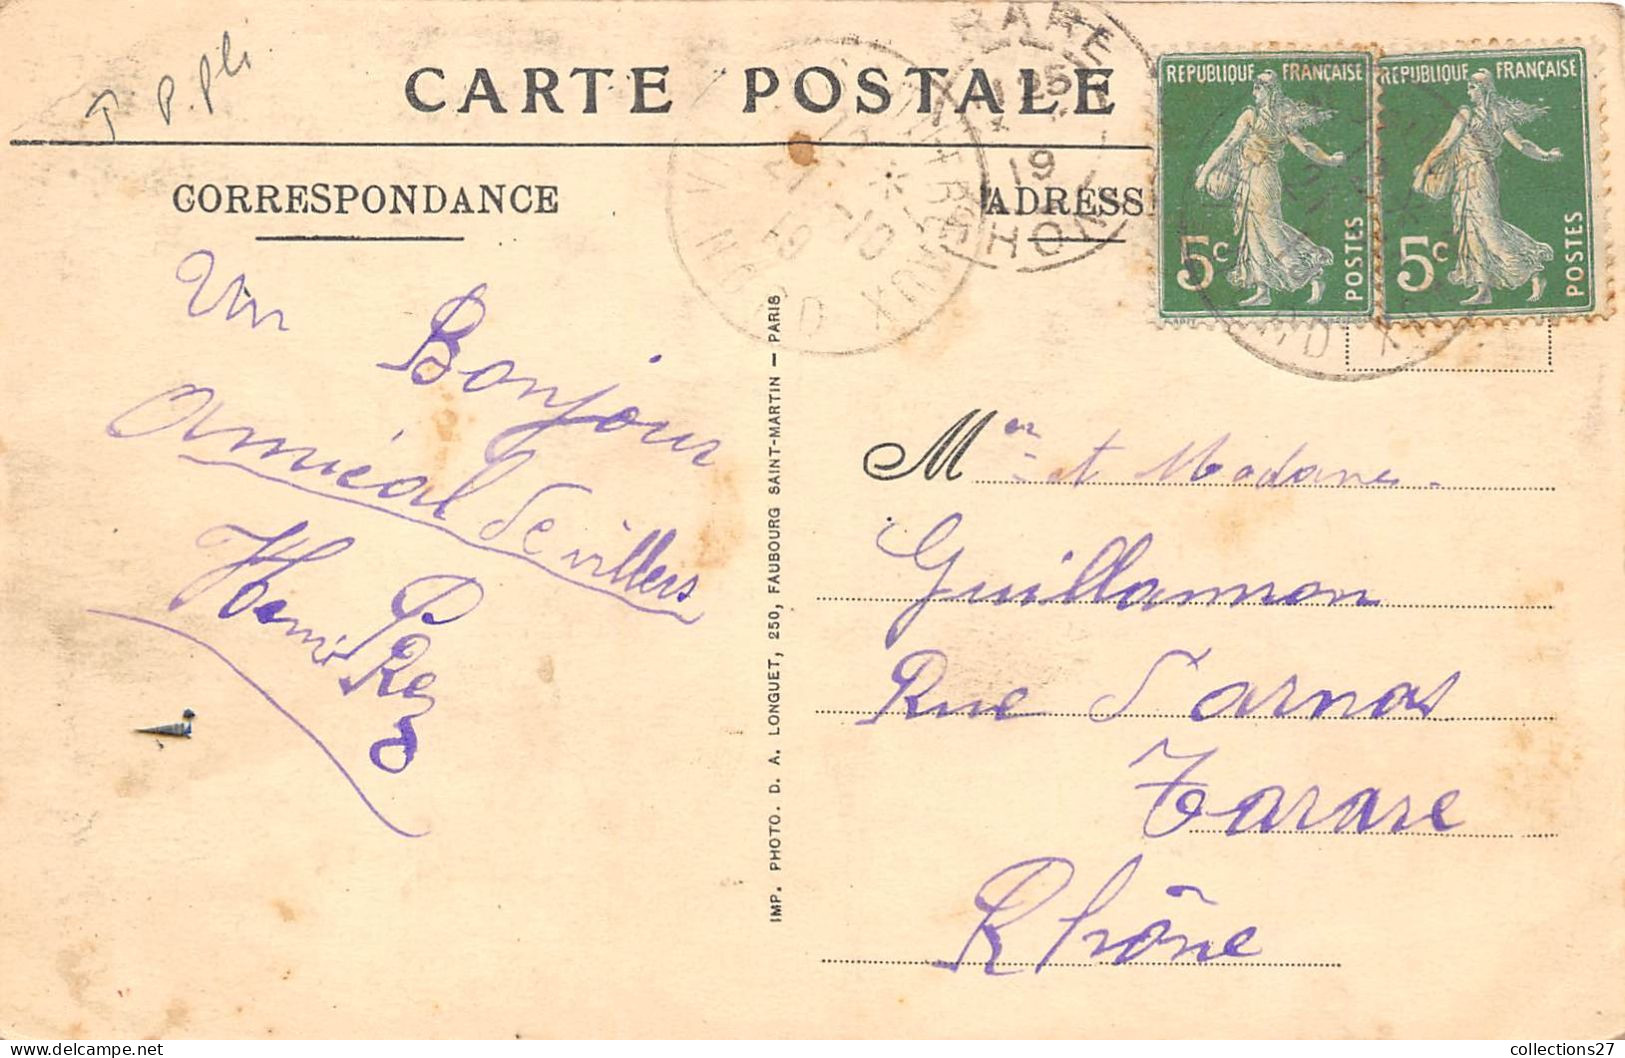 CARTE POSTALE
CORRESPONDANCE
ADRESS
REPUBLIQUE FRANÇAISE
5c
POSTES
REPUBLIQUE FRANÇAISE
5c
POSTES
Un
Bonjour
Amical de villers
Henri
IMP. PHOTO. D. A. LONGUET, 250, FAUBOURG SAINT-MARTIN — PARIS
Mer et Madame
Guillannon
Rue
Tarare
Rhône
RARE
25
19
NORD
collections27